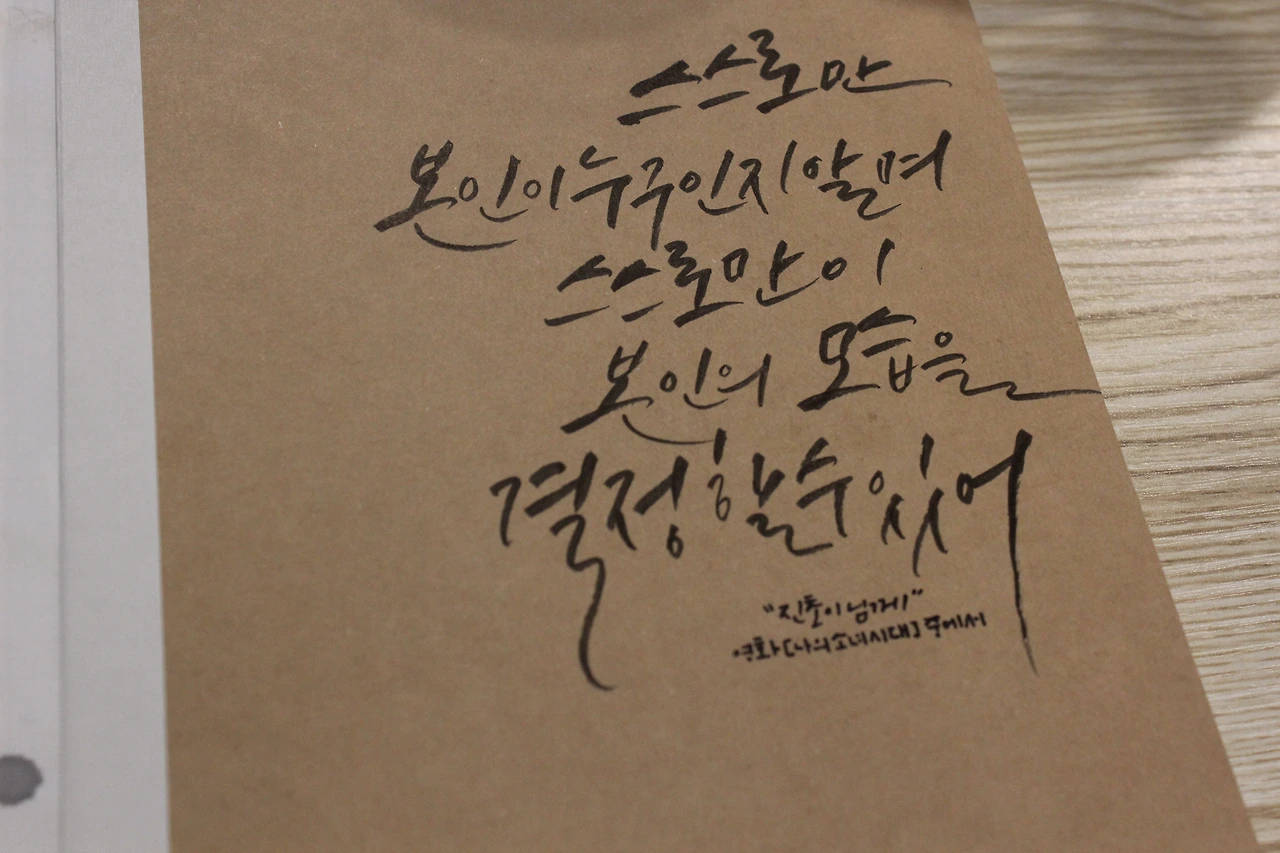 스스로만
본인이 누구인지 알며
스스로만이
본인의 모습을
결정할 수 있어
"진톨이님께!"
영화 [나의 소녀시대] 中에서